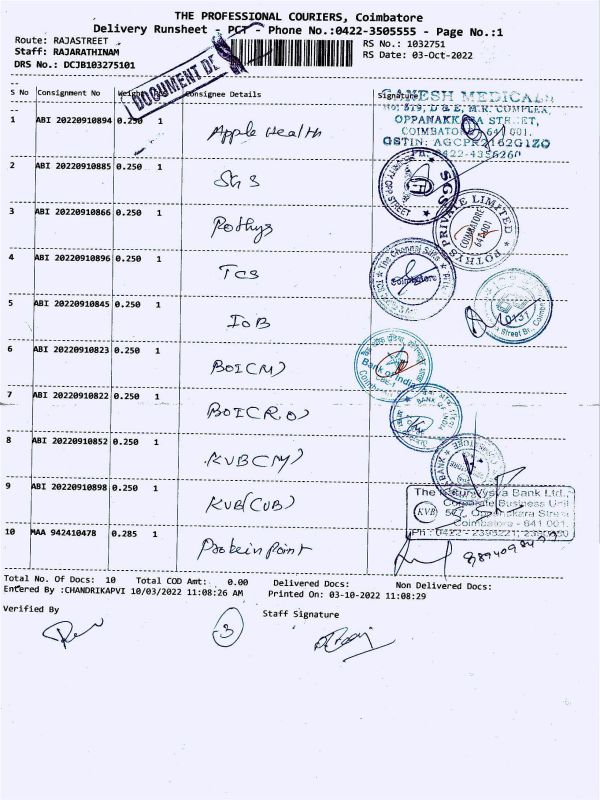 THE PROFESSIONAL COURIERS, Coimbatore
Delivery Runsheet - PCT - Phone No.:0422-3505555 - Page No.:1
Route: RAJASTREET RS No.: 1032751
Staff: RAJARATHINAM RS Date: 03-Oct-2022
DRS No.: DCJB103275101
DOCUMENT DE
S No Consignment No Weight Consignee Details Signature
GANESH MEDICALS
No: 379, D & E, M.R. COMPLEX,
OPPANAKKARA STREET,
COIMBATORE 641 001.
GSTIN: AGCPR2162G1ZO
0422-4356260
1 ABI 20220910894 0.250 1 Apple Health
2 ABI 20220910885 0.250 1 Sks
3 ABI 20220910866 0.250 1 Pothys
POTHYS PRIVATE LIMITED
COIMBATORE
641 001
4 ABI 20220910896 0.250 1 TCS
The Chennai Silks
Coimbatore
5 ABI 20220910845 0.250 1 IOB
6 ABI 20220910823 0.250 1 BOI(M)
Bank of India
7 ABI 20220910822 0.250 1 BOI(R.O)
BANK OF INDIA
8 ABI 20220910852 0.250 1 KVB(M)
9 ABI 20220910898 0.250 1 KVB(CUB)
The Karur Vysya Bank Ltd.,
Corporate Business Unit
KVB
Oppanakara Street
Coimbatore - 641 001.
10 MAA 942410478 0.285 1 Protein point
Total No. Of Docs: 10 Total COD Amt: 0.00 Delivered Docs: Non Delivered Docs:
Entered By :CHANDRIKAPVI 10/03/2022 11:08:26 AM Printed On: 03-10-2022 11:08:29
Verified By Staff Signature
3